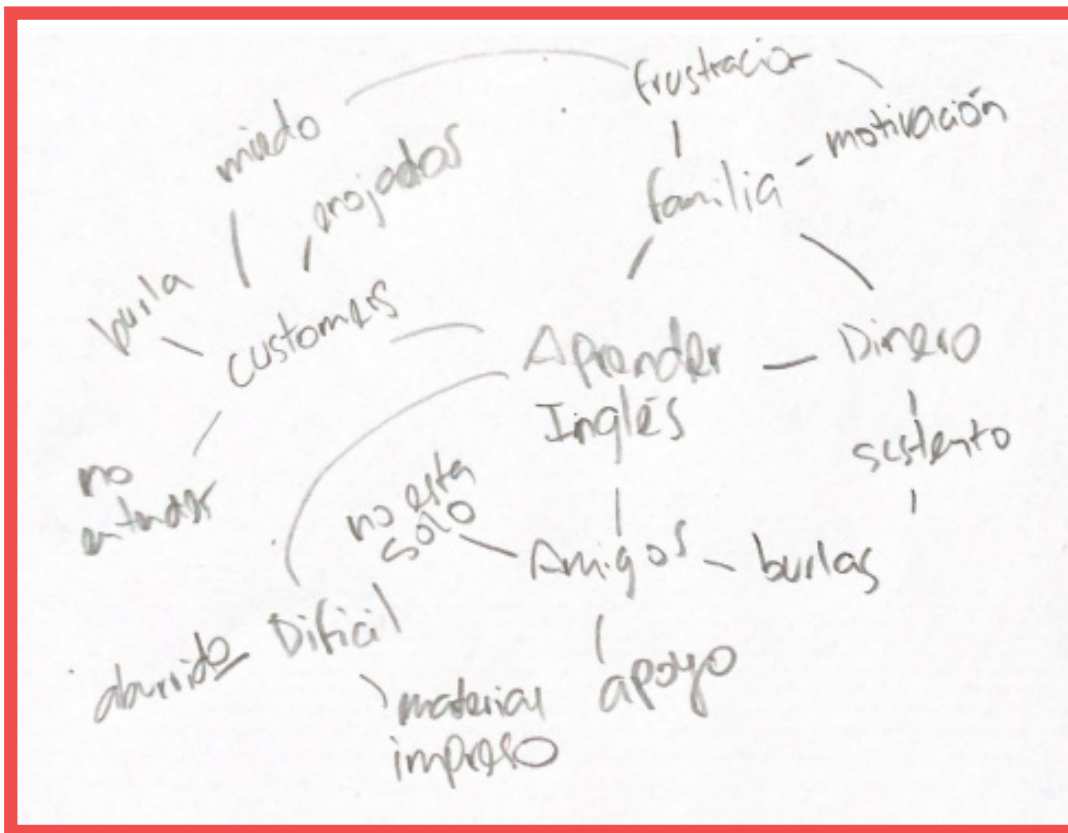 frustración
miedo
motivación
enojados
familia
burla
customers
Aprender
Inglés
Dinero
sustento
no
entender
no esta
solo
Amigos
burlas
Dificil
aburrido
apoyo
material
impreso